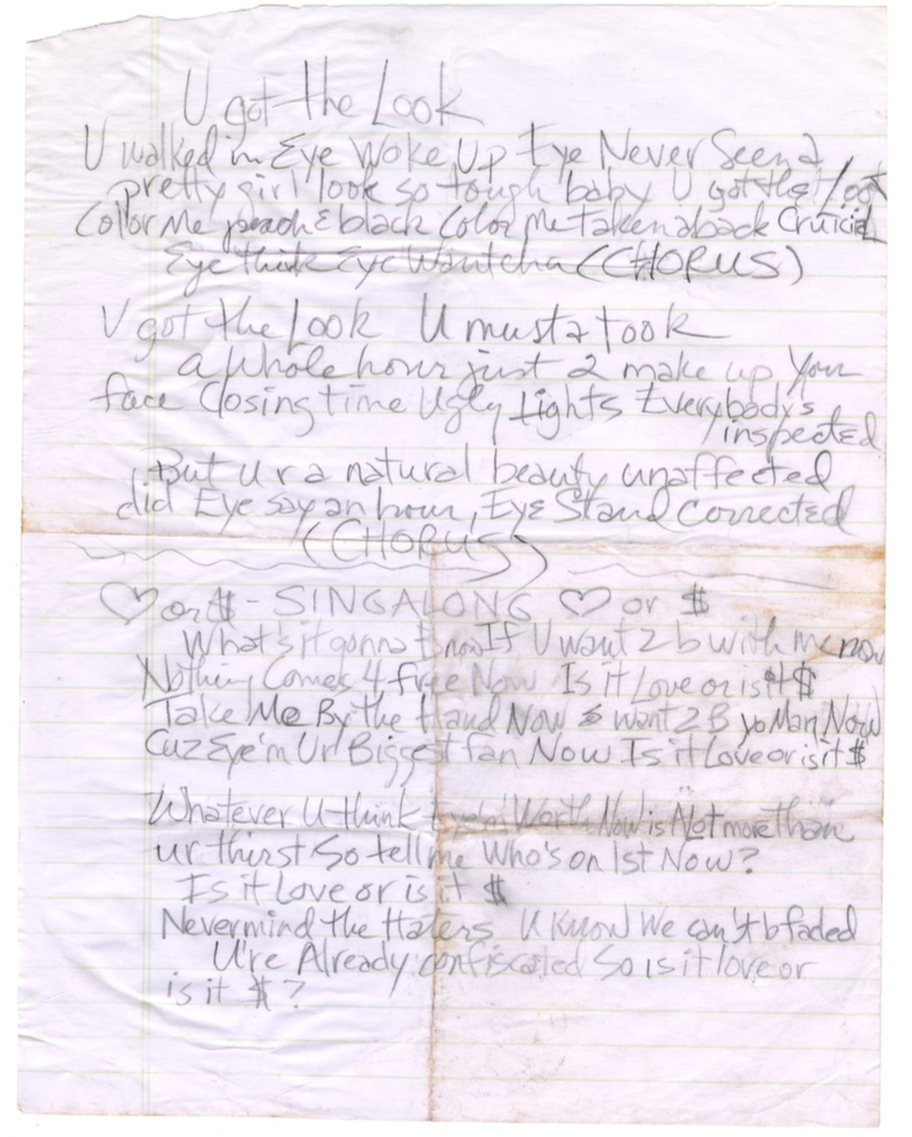 U got the Look
U walked in Eye Woke Up Eye Never Seen a
pretty girl look so tough baby U got that look
Color Me peach & black Color Me taken aback Cruicial
Eye think Eye Wantcha (CHORUS)
U got the Look U musta took
a Whole hour just 2 make up Your
face Closing time Ugly Lights Everybody's
inspected
But U r a natural beauty unaffected
did Eye say an hour, Eye Stand Corrected
(CHORUS)
♡ or $ - SINGALONG ♡ or $
What's it gonna b now If U want 2 b with me now
Nothing Comes 4 free Now Is it Love or is it $
Take Me By the Hand Now want 2 B yo Man Now
Cuz Eye'm Ur Biggest fan Now Is it Love or is it $
Whatever U think Eye'm Worth Now is Not more than
ur thirst So tell me Who's on 1st Now?
Is it Love or is it $
Nevermind the Haters U Know We can't b faded
U're Already confiscated So is it love or
is it $?